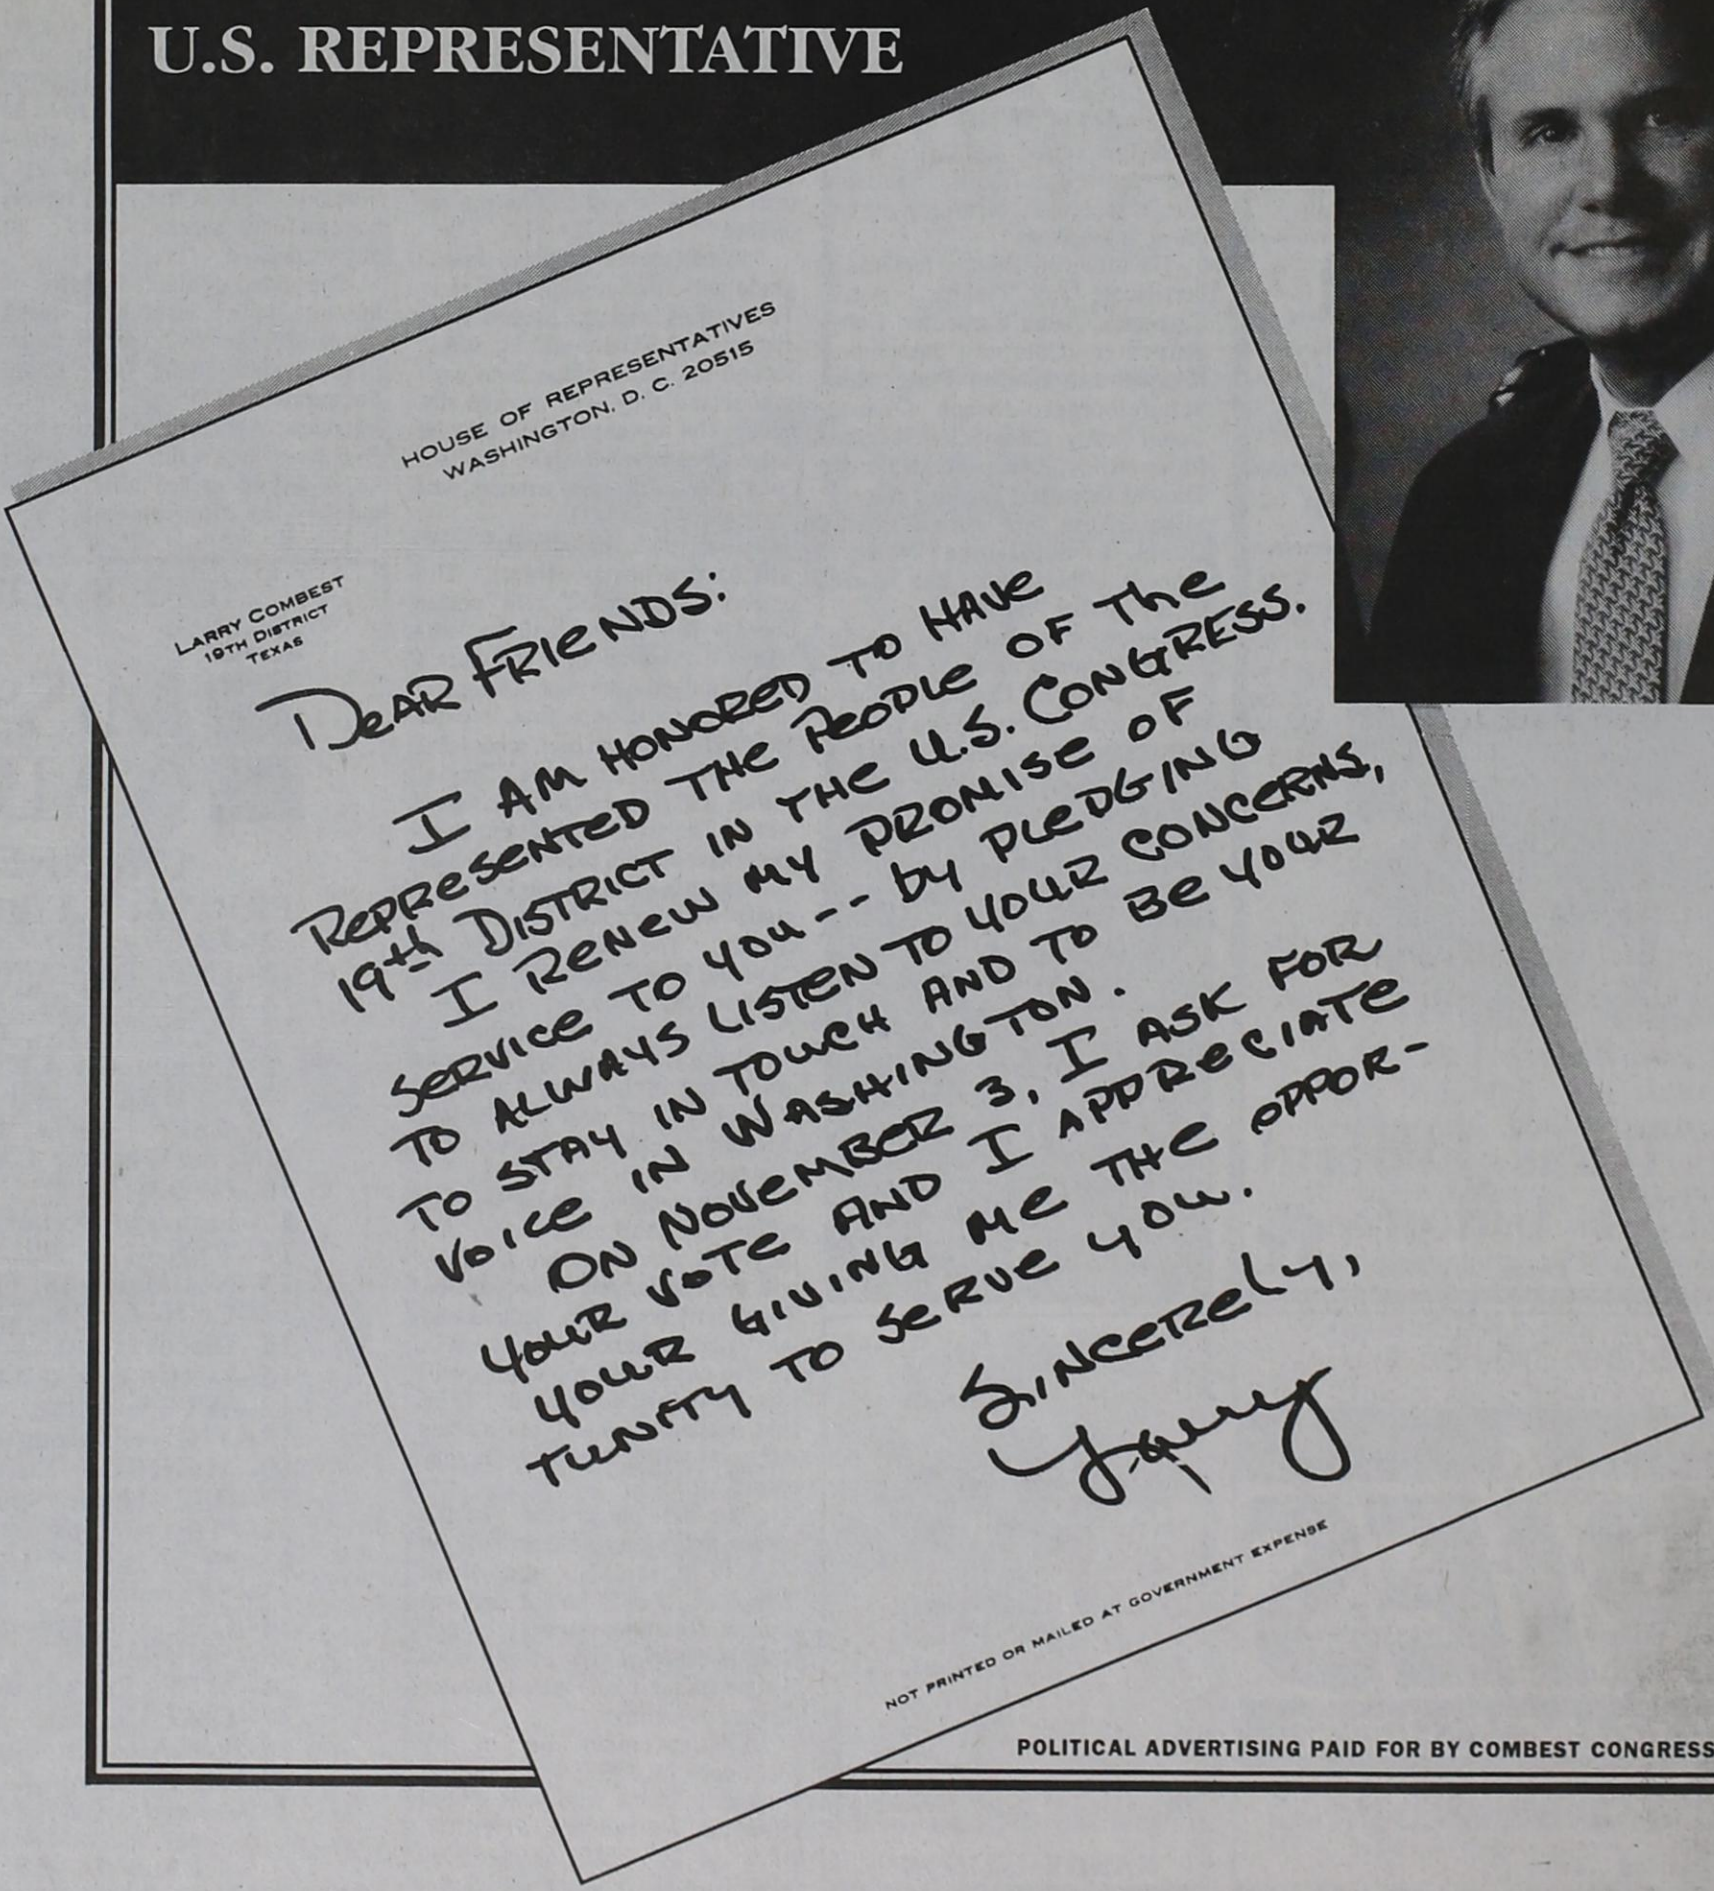 U.S. REPRESENTATIVE
HOUSE OF REPRESENTATIVES
WASHINGTON, D. C. 20515
LARRY COMBEST
19TH DISTRICT
TEXAS
DEAR FRIENDS:
I AM HONORED TO HAVE
REPRESENTED THE PEOPLE OF THE
19th DISTRICT IN THE U.S. CONGRESS.
I RENEW MY PROMISE OF
SERVICE TO YOU -- by PLEDGING
TO ALWAYS LISTEN TO YOUR CONCERNS,
TO STAY IN TOUCH AND TO BE YOUR
VOICE IN WASHINGTON.
ON NOVEMBER 3, I ASK FOR
YOUR VOTE AND I APPRECIATE
YOUR GIVING ME THE OPPOR-
TUNITY TO SERVE YOU.
SINCERELY,
Larry
NOT PRINTED OR MAILED AT GOVERNMENT EXPENSE
POLITICAL ADVERTISING PAID FOR BY COMBEST CONGRESS